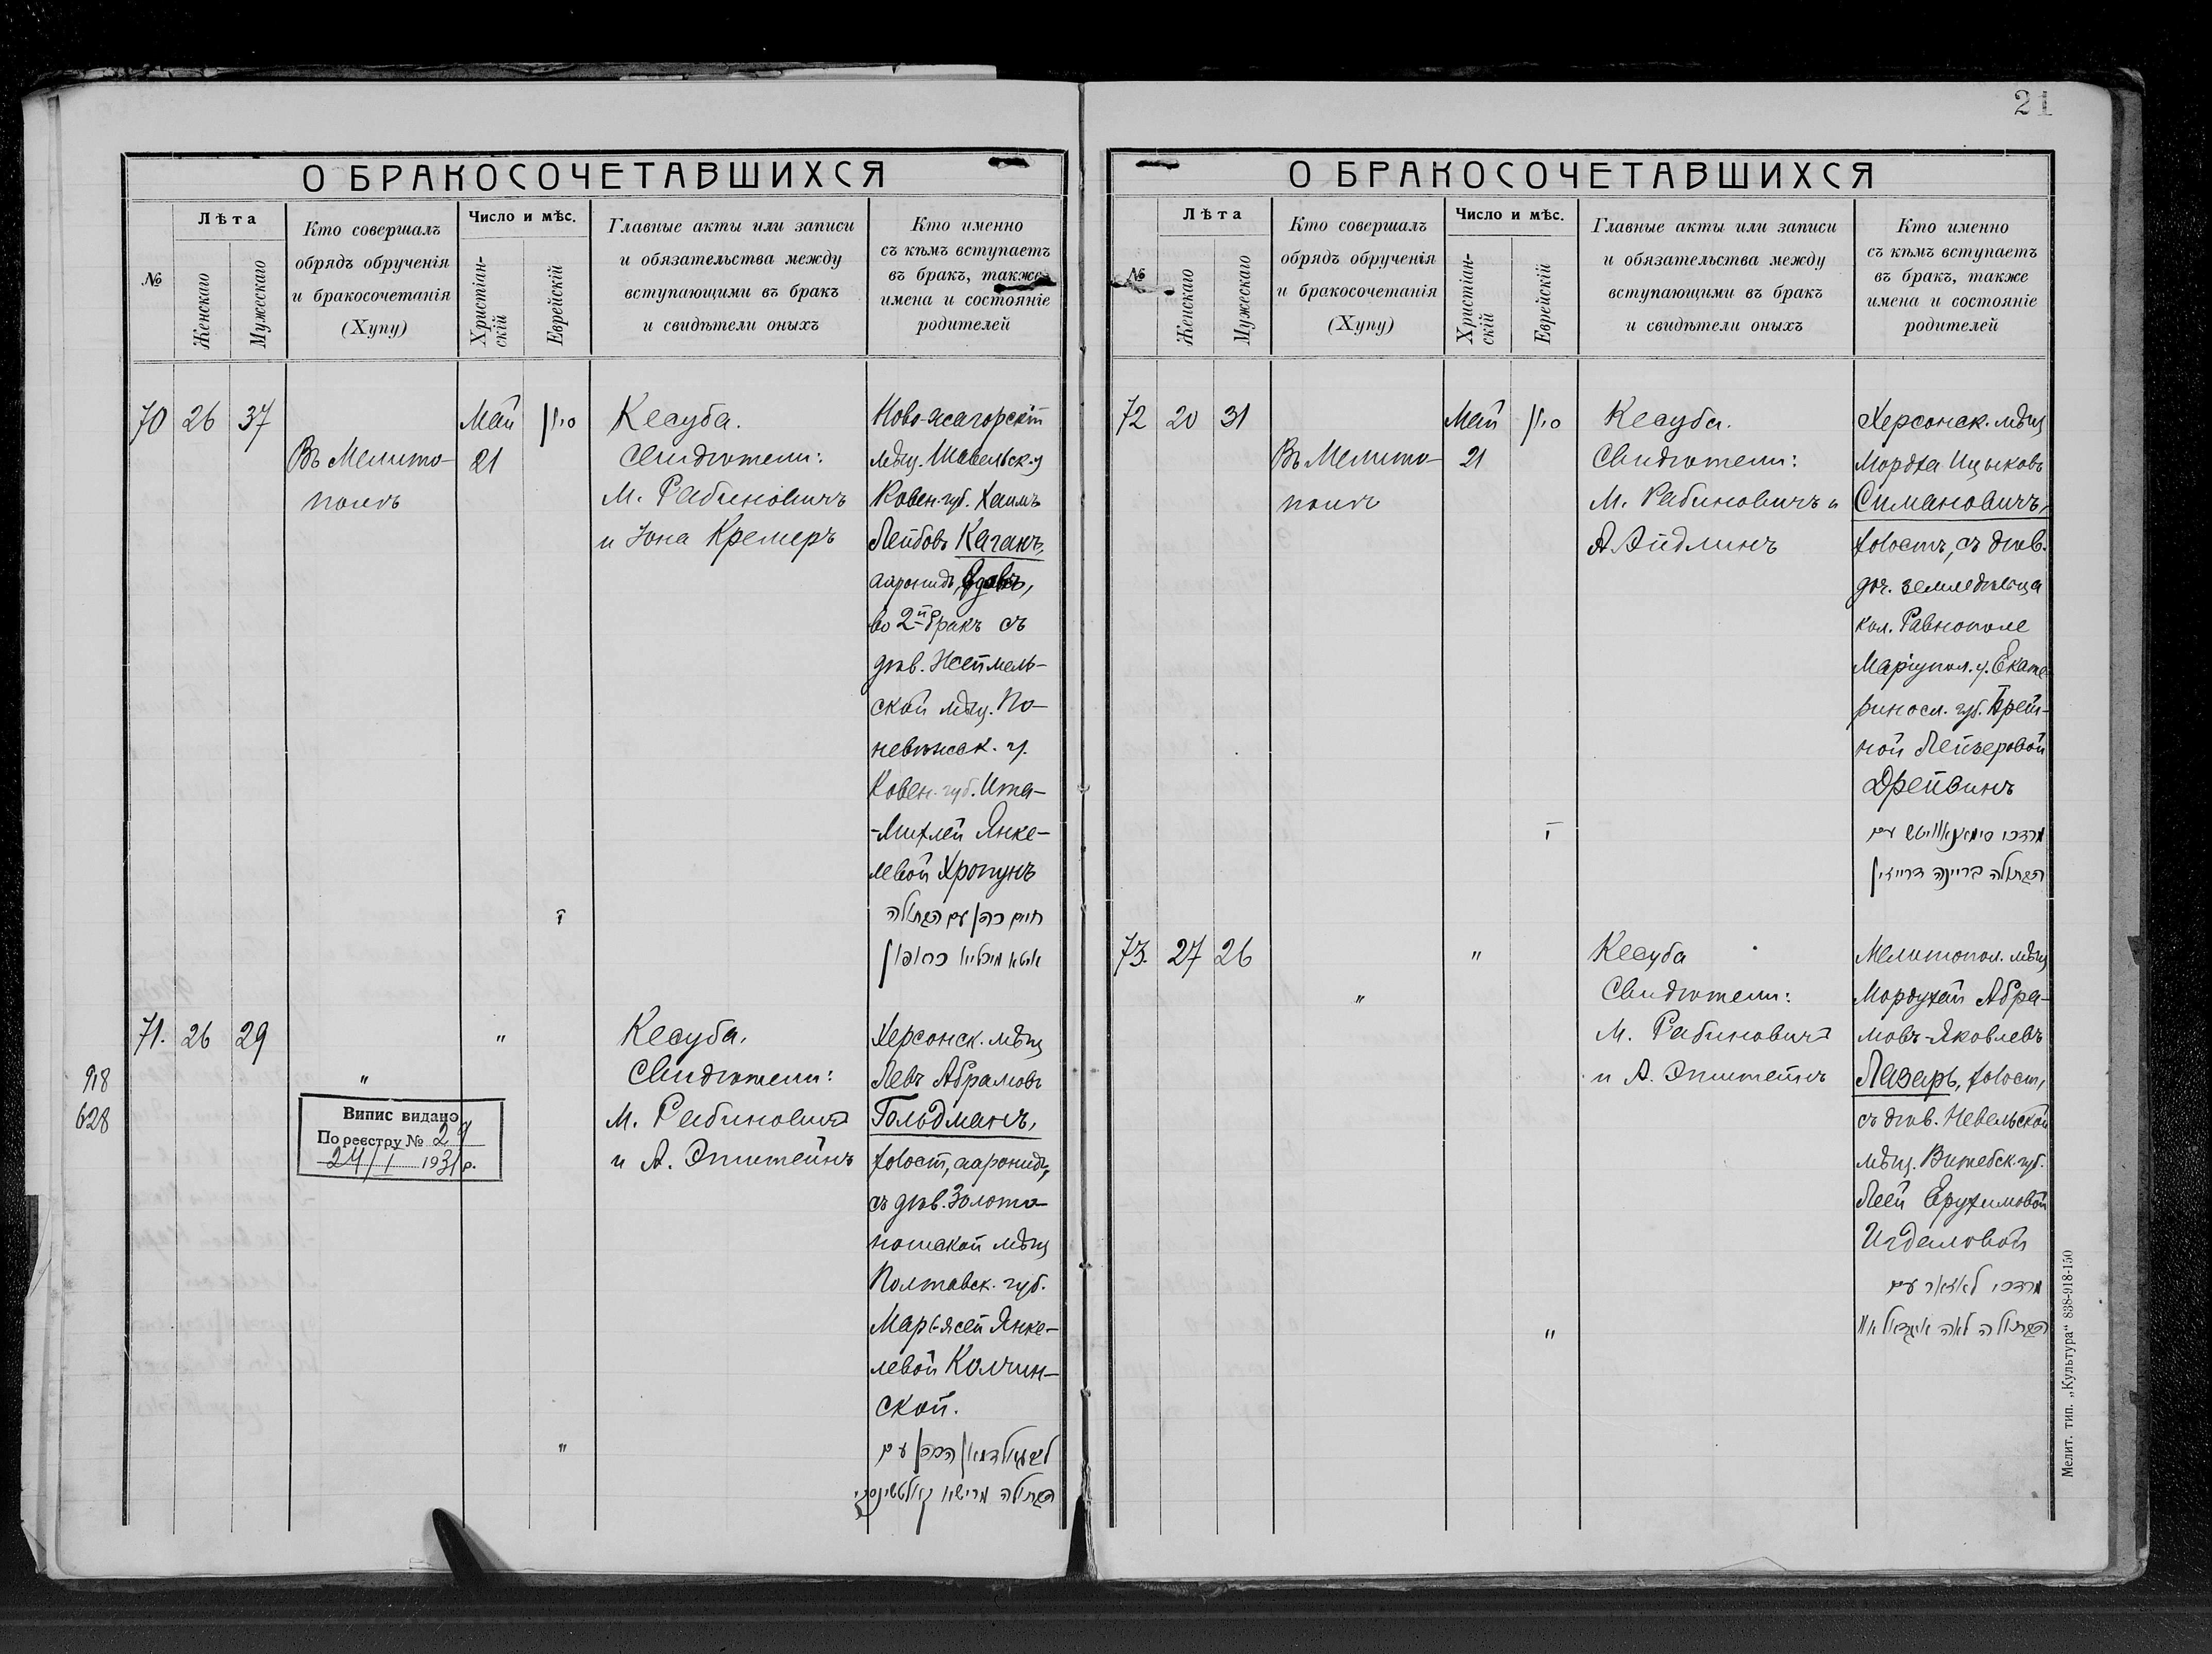 21
О БРАКОСОЧЕТАВШИХСЯ
№
Лѣта
Женскаго
Мужескаго
Кто совершалъ
обрядъ обрученія
и бракосочетанія
(Хупу)
Число и мѣс.
Христіан-
скій
Еврейскій
Главные акты или записи
и обязательства между
вступающими въ бракъ
и свидѣтели оныхъ
Кто именно
съ кѣмъ вступаетъ
въ бракъ, также
имена и состояніе
родителей
70 26 37
Въ Мелито-
полѣ
Май
21
סיון
Кесуба.
Свидѣтели:
М. Рабиновичъ
и Іона Кремеръ
Ново-жагорскій
мѣщ. Шавельск. у
Ковен. губ. Хаимъ
Лейбовъ Каганъ,
ааронидъ,
во 2й бракъ съ
дѣв. Неймель-
ской мѣщ. По-
невѣжск. у.
Ковен. губ. Ита-
-Михлей Янке-
левой Хропунъ
ז
חיים כהן עם הבתולה
איטא מיכליא כראפון
71. 26 29
918
628
"
"
Випис видано
По реєстру № 29
24/I 1931 р.
Кесуба.
Свидѣтели:
М. Рабиновичъ
и А. Эпштейнъ
Херсонск. мѣщ
Левъ Абрамовъ
Гольдманъ,
холост, ааронидъ,
съ дѣв. Золото-
ношской мѣщ
Полтавск. губ.
Марьясей Янке-
левой Колчин-
ской.
"
לעב גאלדמאן הכהן עם
הבתולה מרישא קאלטשינסקי
О БРАКОСОЧЕТАВШИХСЯ
№
Лѣта
Женскаго
Мужескаго
Кто совершалъ
обрядъ обрученія
и бракосочетанія
(Хупу)
Число и мѣс.
Христіан-
скій
Еврейскій
Главные акты или записи
и обязательства между
вступающими въ бракъ
и свидѣтели оныхъ
Кто именно
съ кѣмъ вступаетъ
въ бракъ, также
имена и состояніе
родителей
72 20 31
Въ Мелито-
полѣ
Май
21
סיון
Кесуба.
Свидѣтели:
М. Рабиновичъ и
А Айдлинъ
Херсонск. мѣщ
Мордха Ицыковъ
Симановичъ,
холостъ, съ дѣв.
доч. земледѣльца
кол. Равнополе
Маріупол. у. Екате-
риносл. губ. Брей-
ной Лейзеровой
Дрейвинъ
ז
מרדכי סימאנאוויטש עם
הבתולה בריינה דרייווין
73. 27 26
"
"
Кесуба
Свидѣтели:
М. Рабиновичъ
и А. Эпштейнъ
Мелитопол. мѣщ
Мордухай Абра-
мовъ-Яковлевъ
Лазарь, холост,
съ дѣв. Невельской
мѣщ. Витебск. губ.
Леей Ерухимовой
Игдаловой
"
מרדכי לאזאר עם
הבתולה לאה איגדאלאוו
Мелит. тип. „Культура“ 838-918-150